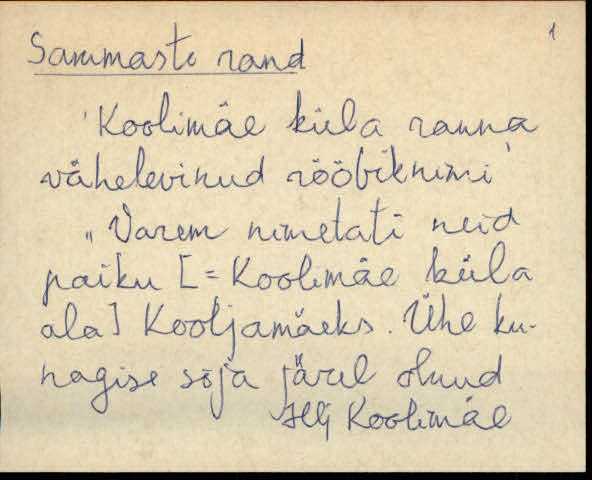 1
Sammaste rand
'Koolimäe küla ranna
vähelevinud rööbiknimi'
„Varem nimetati neid
paiku [=Koolimäe küla
ala] Kooljamäeks. Ühe ku-
nagise sõja järel olnud
Hlj Koolimäe